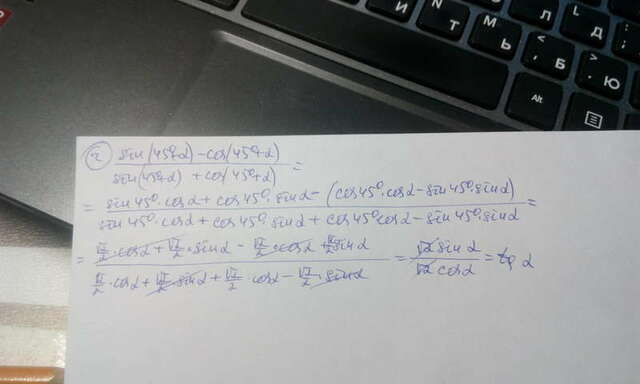 И Л Д
N T М Ь < , Б > . Ю
Alt
2) (sin(45°+α) - cos(45°+α)) / (sin(45°+α) + cos(45°+α)) =
= (sin45°·cosα + cos45°·sinα - (cos45°·cosα - sin45°·sinα)) / (sin45°·cosα + cos45°·sinα + cos45°cosα - sin45°·sinα) =
= (√2/2·cosα + √2/2·sinα - √2/2·cosα + √2/2 sinα) / (√2/2·cosα + √2/2 sinα + √2/2·cosα - √2/2·sinα) = (√2 sinα) / (√2 cosα) = tg α